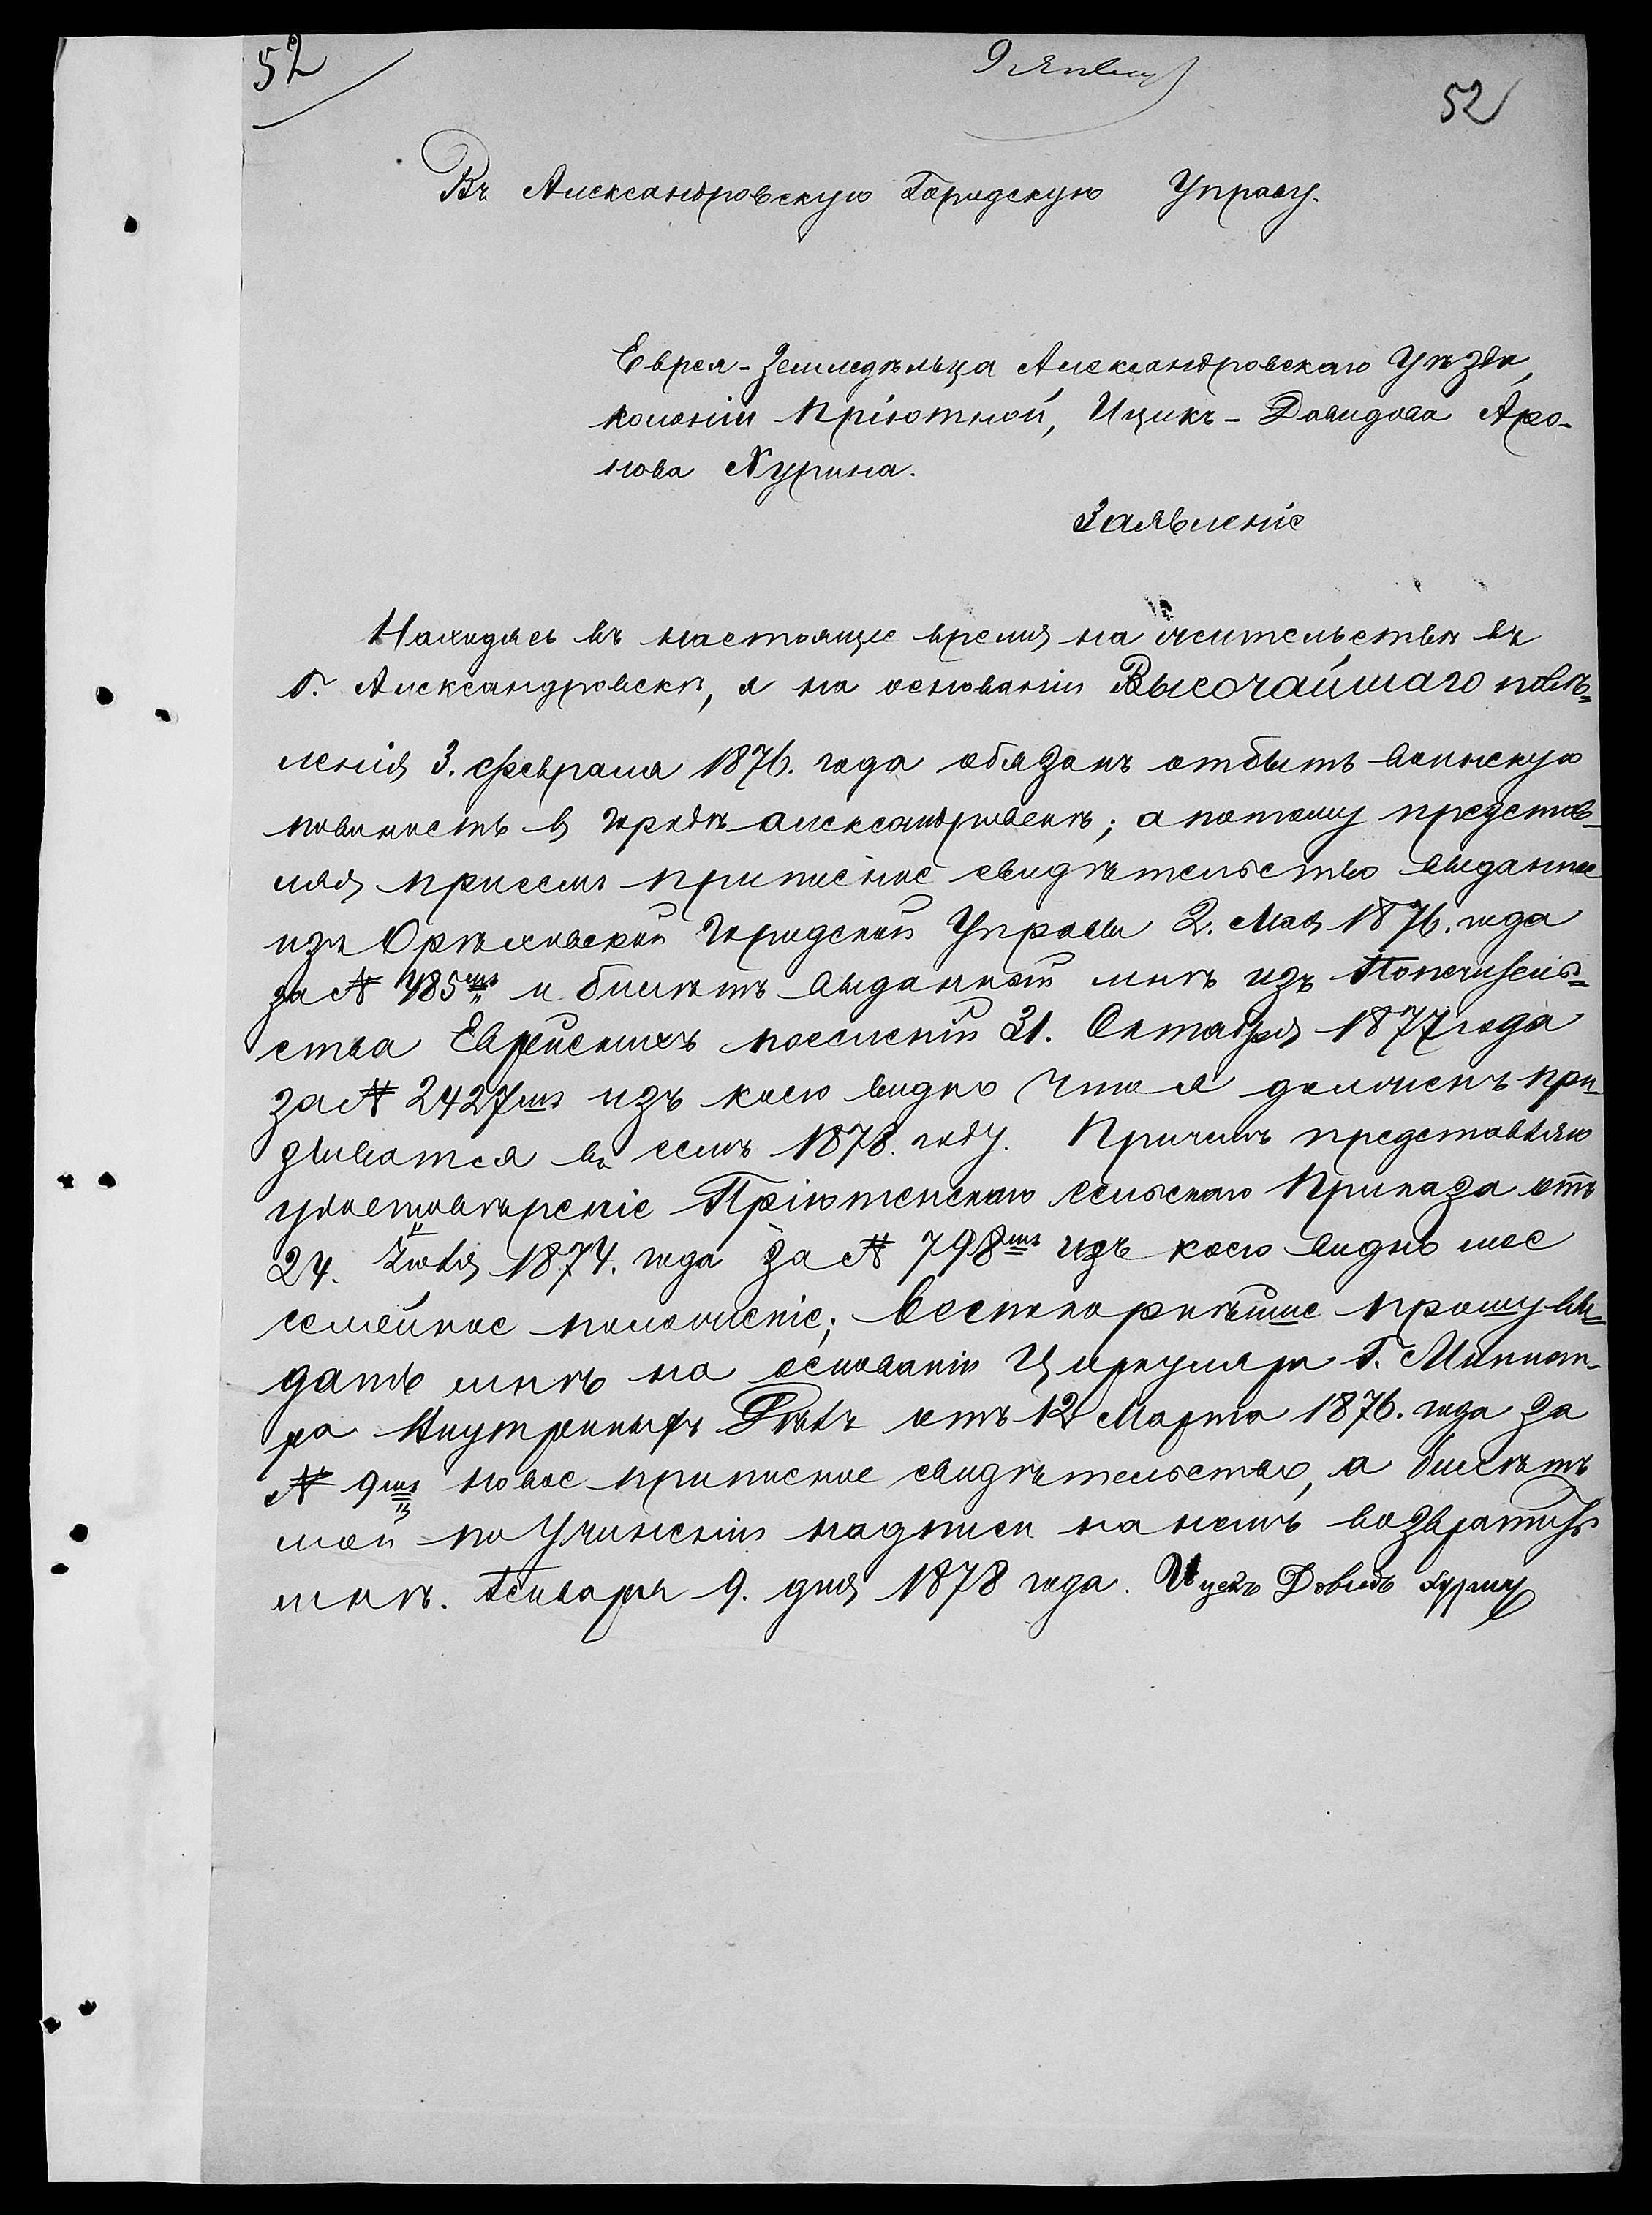 52
9 Января
52
Въ Александровскую Городскую Управу.
Еврея-Земледѣльца Александровскаго Уѣзда,
колоніи Пріютной, Ицикъ-Давидова Аро-
нова Хурина.
Заявленіе
Находясь въ настоящее время на жительствѣ въ
г. Александровскѣ, я на основаніи Высочайшаго повѣ-
ленія 3. Февраля 1876. года обязанъ отбыть воинскую
повиность въ городѣ александровскѣ; а потому представ-
ляя присемъ приписное свидѣтельство выданное
изъ Орѣховской Городской Управы 2. Мая 1876. года
за № 485мъ и билѣтъ выданный мнѣ изъ Попечитель-
ства Еврейскихъ поселеній 31. Октября 1877 года
за № 2427мъ изъ коего видно что я долженъ при-
зыватся въ семъ 1878. году. Причемъ представляю
удостовѣреніе Пріютенскаго сельскаго Приказа отъ
24. Іюля 1874. года за № 798мъ изъ коего видно мое
семейное положеніе; всепокорнѣйше прошу вы-
дать мнѣ на основаніи Циркуляра Г. Министе-
ра Внутренныхъ Дѣлъ отъ 12 Марта 1876. года за
№ 9мъ новое приписное свидѣтельство, а билѣтъ
мой по учиненіи надписи на немъ возвратить
мнѣ. Генваря 9. дня 1878 года. Ицекъ Довидъ Хуринъ